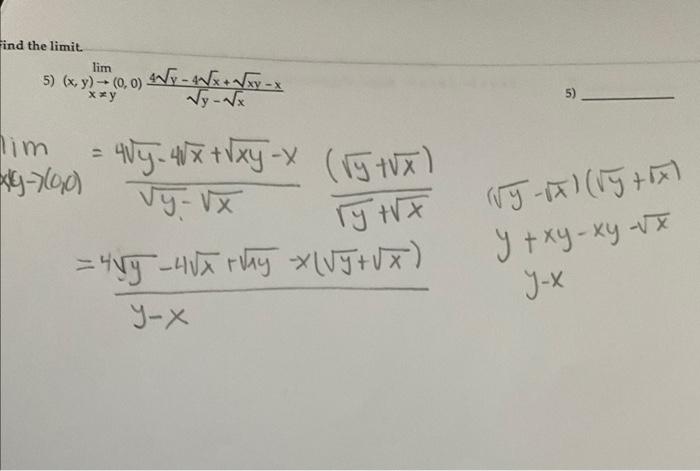 Find the limit.
lim
5) (x, y) → (0, 0) 4√y - 4√x + √xy - x
x ≠ y √y - √x
5)
lim = 4√y - 4√x + √xy - x (√y + √x)
x,y→(0,0) √y - √x √y + √x
(√y - √x)(√y + √x)
y + xy - xy - √x
y - x
= 4√y - 4√x + √xy - x(√y + √x)
y - x